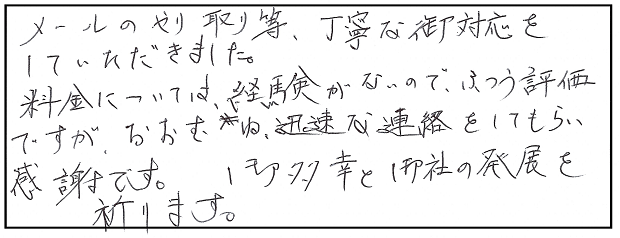 メールのやり取り等、丁寧な御対応を
していただきました。
料金については、経験がないので、ふつう評価
ですが、おおむね、迅速な連絡をしてもらい
感謝です。 御多幸と御社の発展を
祈ります。